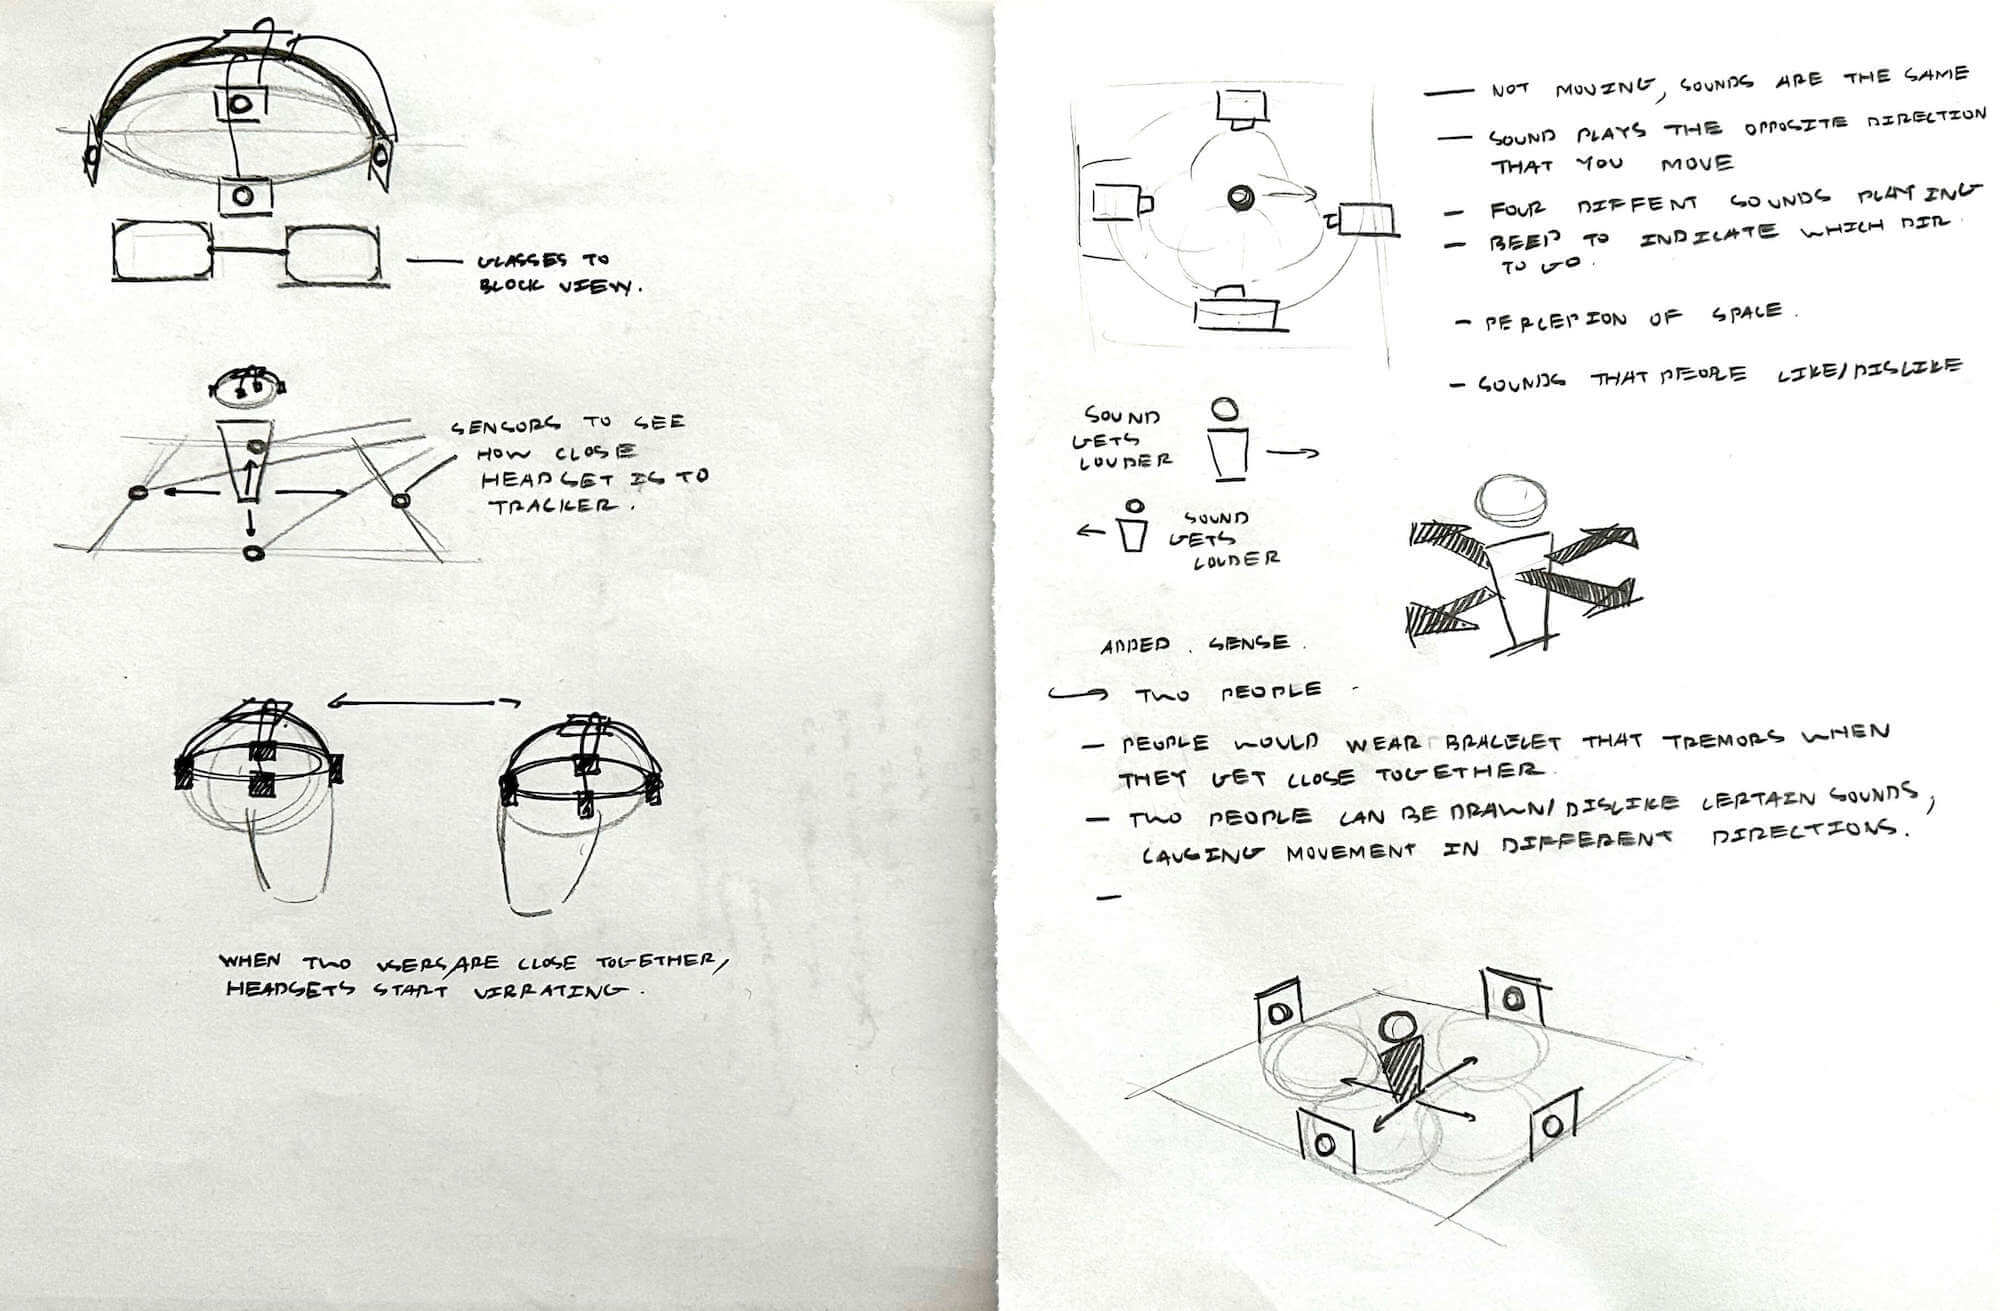 GLASSES TO
BLOCK VIEW.
SENSORS TO SEE
HOW CLOSE
HEADSET IS TO
TRACKER.
WHEN TWO USERS/ARE CLOSE TOGETHER,
HEADSETS START VIBRATING.
— NOT MOVING, SOUNDS ARE THE SAME
— SOUND PLAYS THE OPPOSITE DIRECTION
THAT YOU MOVE
— FOUR DIFFENT SOUNDS PLAYING
— BEEP TO INDICATE WHICH DIR.
TO GO.
— PERCEPION OF SPACE.
— SOUNDS THAT PEOPLE LIKE/DISLIKE
SOUND
GETS
LOUDER
SOUND
GETS
LOUDER
ADDED. SENSE.
→ TWO PEOPLE -
— PEOPLE WOULD WEAR BRACELET THAT TREMORS WHEN
THEY GET CLOSE TOGETHER.
— TWO PEOPLE CAN BE DRAWN/DISLIKE CERTAIN SOUNDS,
CAUSING MOVEMENT IN DIFFERENT DIRECTIONS.
—